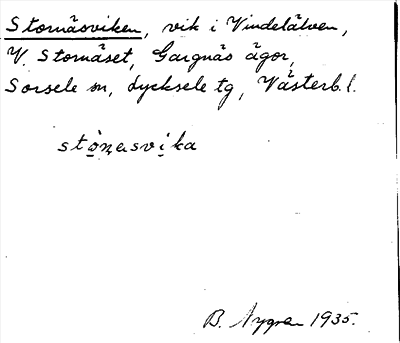 Stornäsviken, vik i Vindelälven,
V. Stornäset, Gargnäs ägor,
Sorsele sn, Lycksele tg, Västerb. l.
stò̩ṇasvi̩ka
B. Nygren 1935.